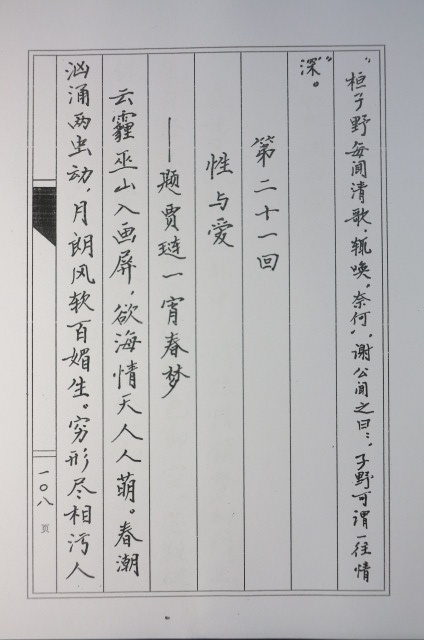 “桓子野每闻清歌，辄唤，奈何”，谢公闻之曰：，子野可谓一往情
深”。
第二十一回
性与爱
——题贾琏一宵春梦
云霾巫山入画屏，欲海情天人人萌。春潮
汹涌两虫动，月朗风软百媚生。穷形尽相污人
一〇八 页